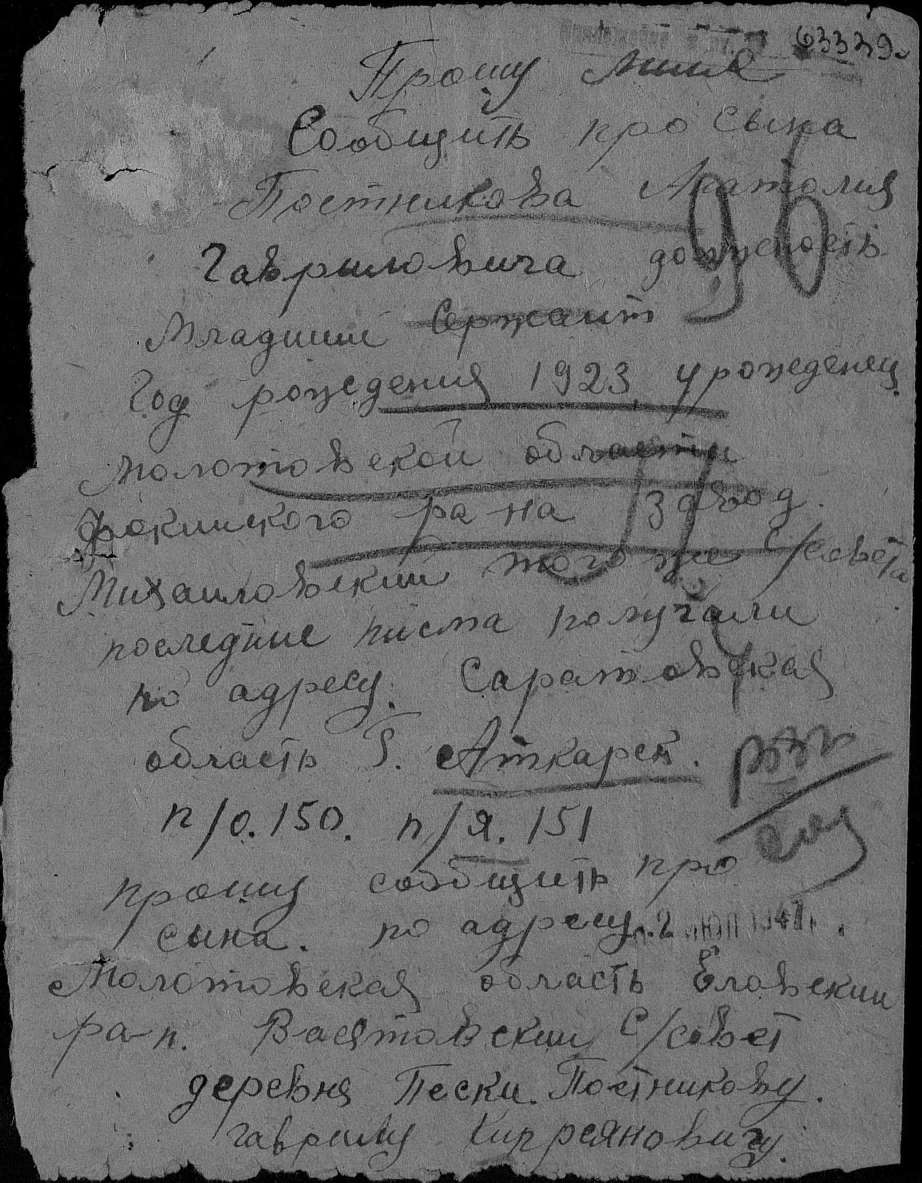 63339
Прошу
Сообщить про сына
Постникова Анатолия
Гаврыловича должность
Младший Сержант
96
Год рождения 1923 урожденец
Молотовской области
Фокинского ра на завод
Михаиловский того же С/совета
последние писма получали
по адресу. Саратовская
область г. Аткарск.
п/о. 150. п/Я. 151
прошу сообщить про
сына. по адресу.
Молотовская область Еловский
ра-н. С/совет
деревня Пески. Постникову.
Гаврылу Кипрсяновичу.